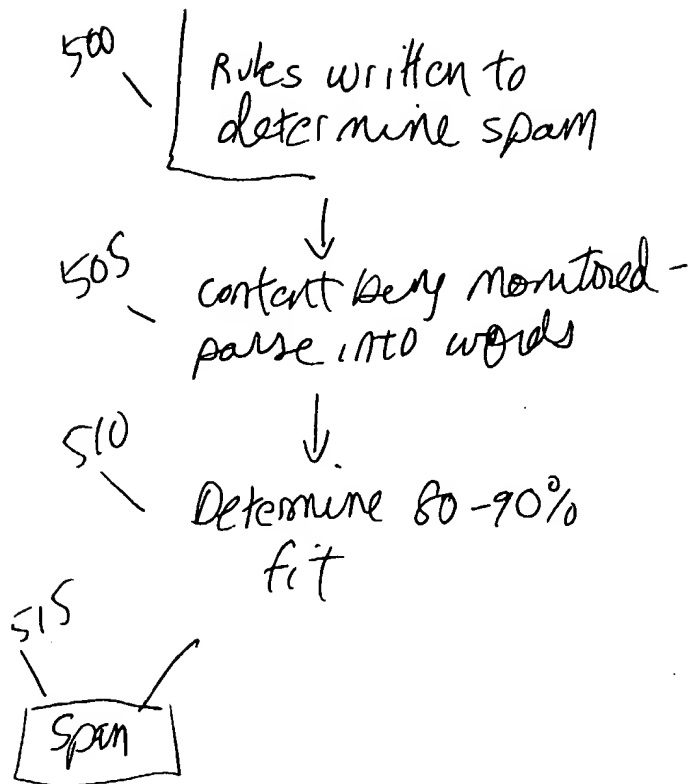 500
Rules written to
determine spam
505
content being monitored -
parse into words
510
Determine 80-90%
fit
515
Spam